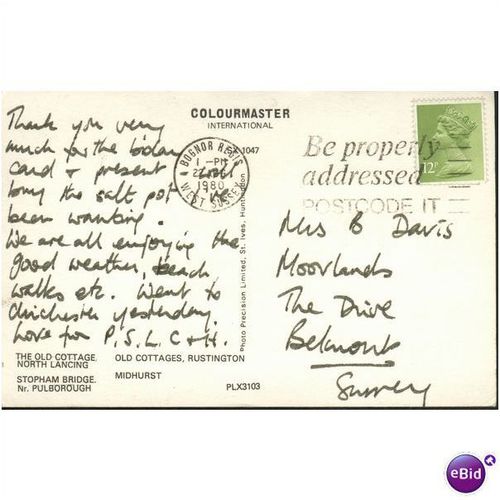 COLOURMASTER
INTERNATIONAL
Thank you very
much for the b'day
card & present
the salt pot
been wanting.
We are all enjoying the
good weather, beach
walks etc. Went to
Chichester yesterday.
Love from P, S, L, C & H.
THE OLD COTTAGE,
NORTH LANCING
OLD COTTAGES, RUSTINGTON
STOPHAM BRIDGE,
Nr. PULBOROUGH
MIDHURST
PLX3103
1047
Photo Precision Limited, St. Ives, Huntingdon
BOGNOR REGIS
1-PM
22
1980
WEST SUSSEX
Be properly
addressed
POSTCODE IT
12P
Mrs B Davis
Moorlands
The Drive
Belmont
Surrey
eBid